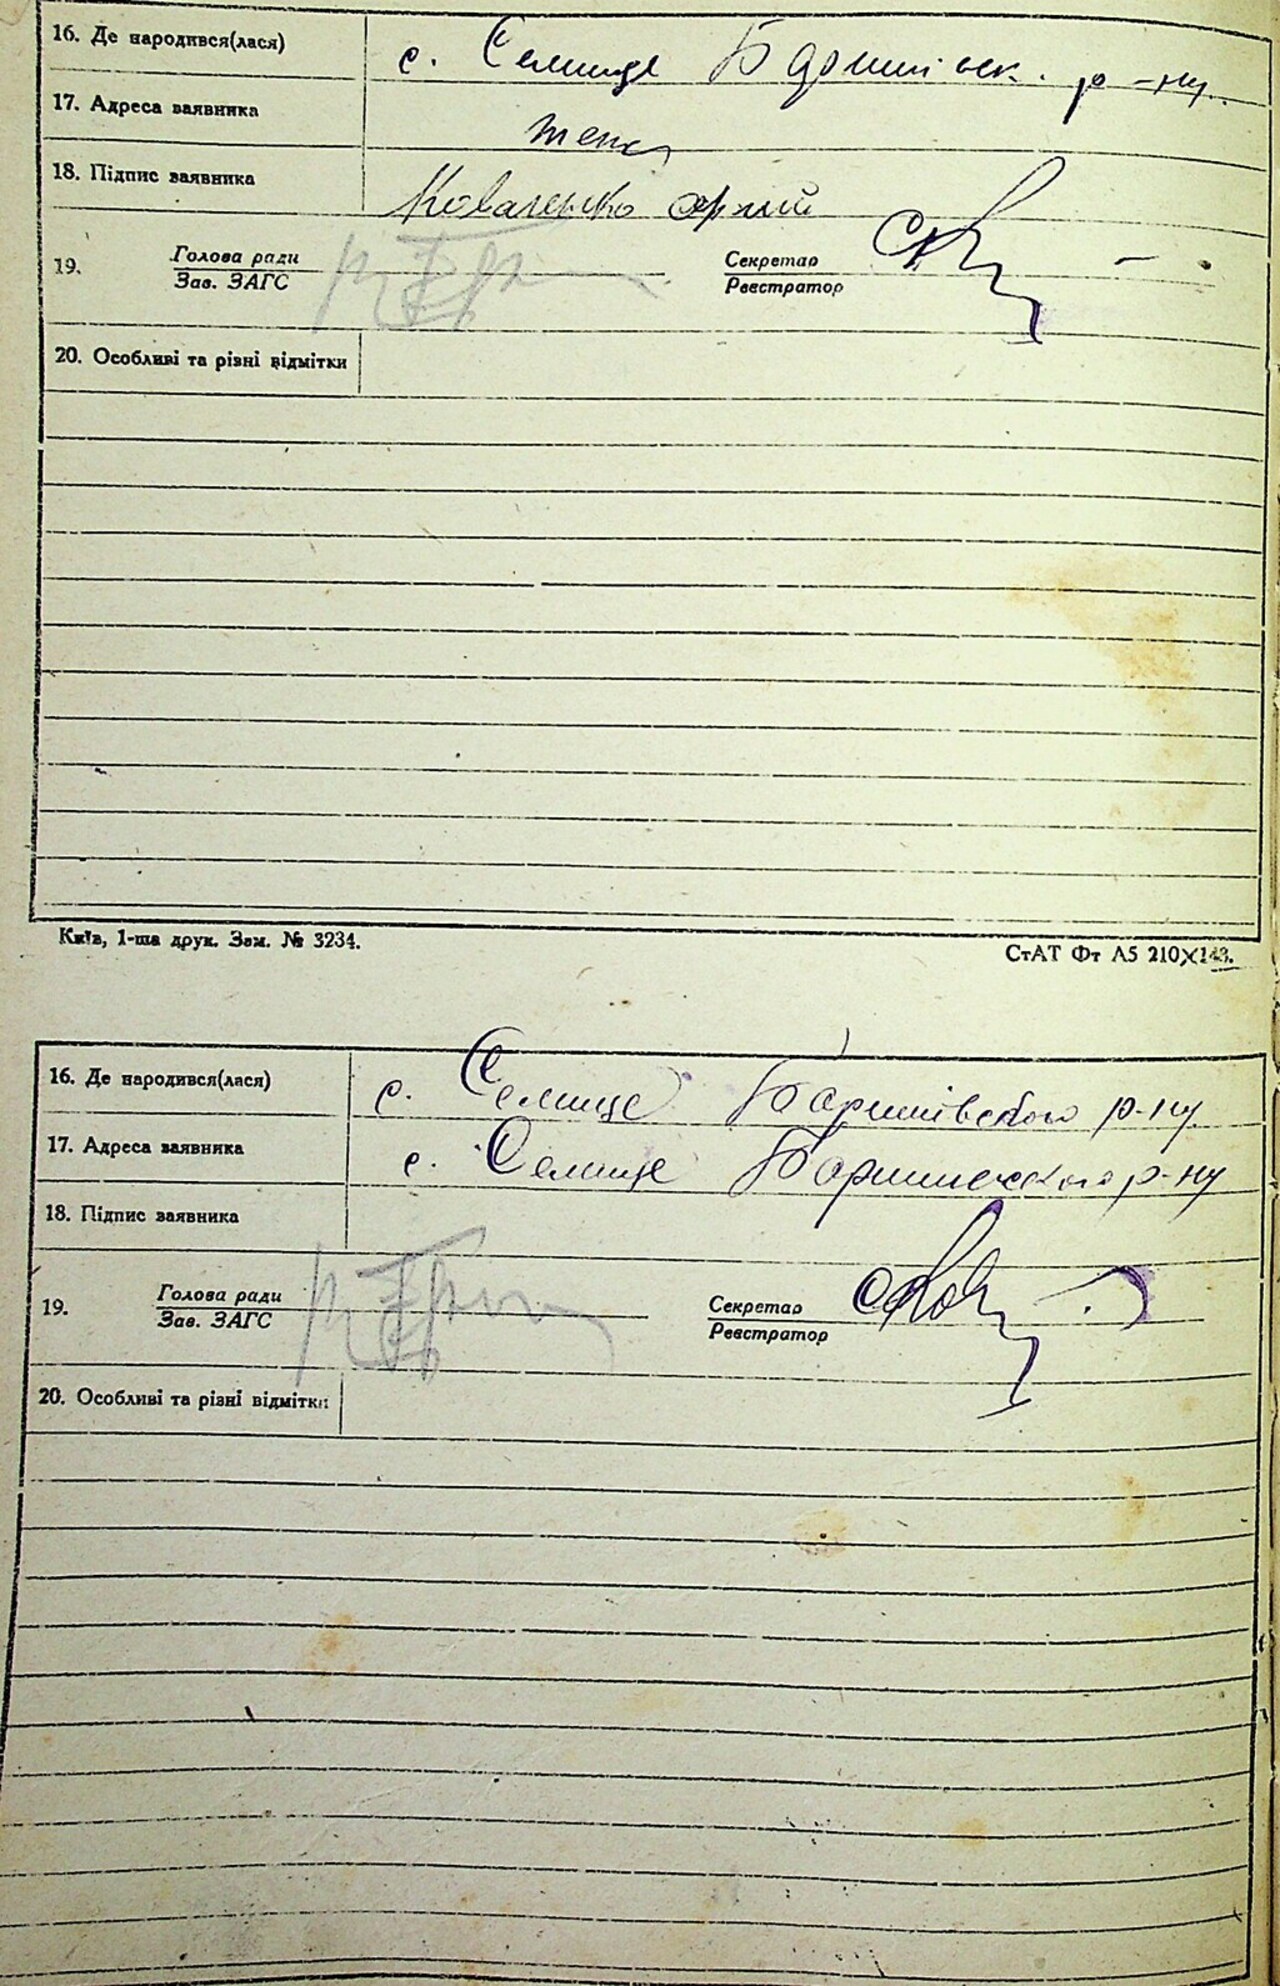 16. Де народився(лася) с. Селище Баришівськ. р-ну.
17. Адреса заявника
18. Підпис заявника Коваленко
19. Голова ради Секретар
Зав. ЗАГС Реєстратор
20. Особливі та різні відмітки
Київ, 1-ша друк. Зам. № 3234.
СтАТ Фт А5 210×148.
16. Де народився(лася) с. Селище Баришівського р-ну
17. Адреса заявника с. Селище Баришевского р-ну
18. Підпис заявника
19. Голова ради Секретар
Зав. ЗАГС Реєстратор
20. Особливі та різні відмітки